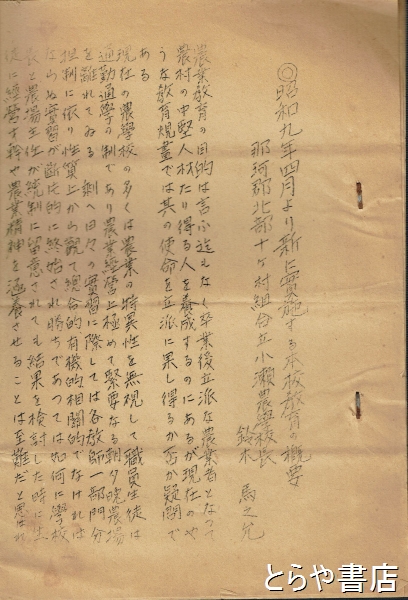 ◎昭和九年四月より新に實施する本校教育の概要
那珂郡北部十ケ村組合立小瀬農學校長
鈴木 馬之允
農業教育の目的は言ふ迄もなく卒業後立派な農業者となつて
農村の中堅人物たり得る人を養成するのにあるが現在のや
うな教育規畫では其の使命を立派に果し得るか否か疑問で
ある
現在の農學校の多くは農業の特異性を無視して職員生徒は
通勤通學の制であり農業經營上極めて緊要なる朝夕晩農場
を離れてゐる 剰へ日々の實習に際しては各教師一部門分
担制に依り性質上から観て綜合的有機的相関的でなければ
ならぬ實習が断片的に終始され勝ちであつては如何に學校
長と農場主任が統制に留意されても結果を検討した時に生
徒に經營す幹や農業精神を涵養させることは至難だと思はれ
とらや書店